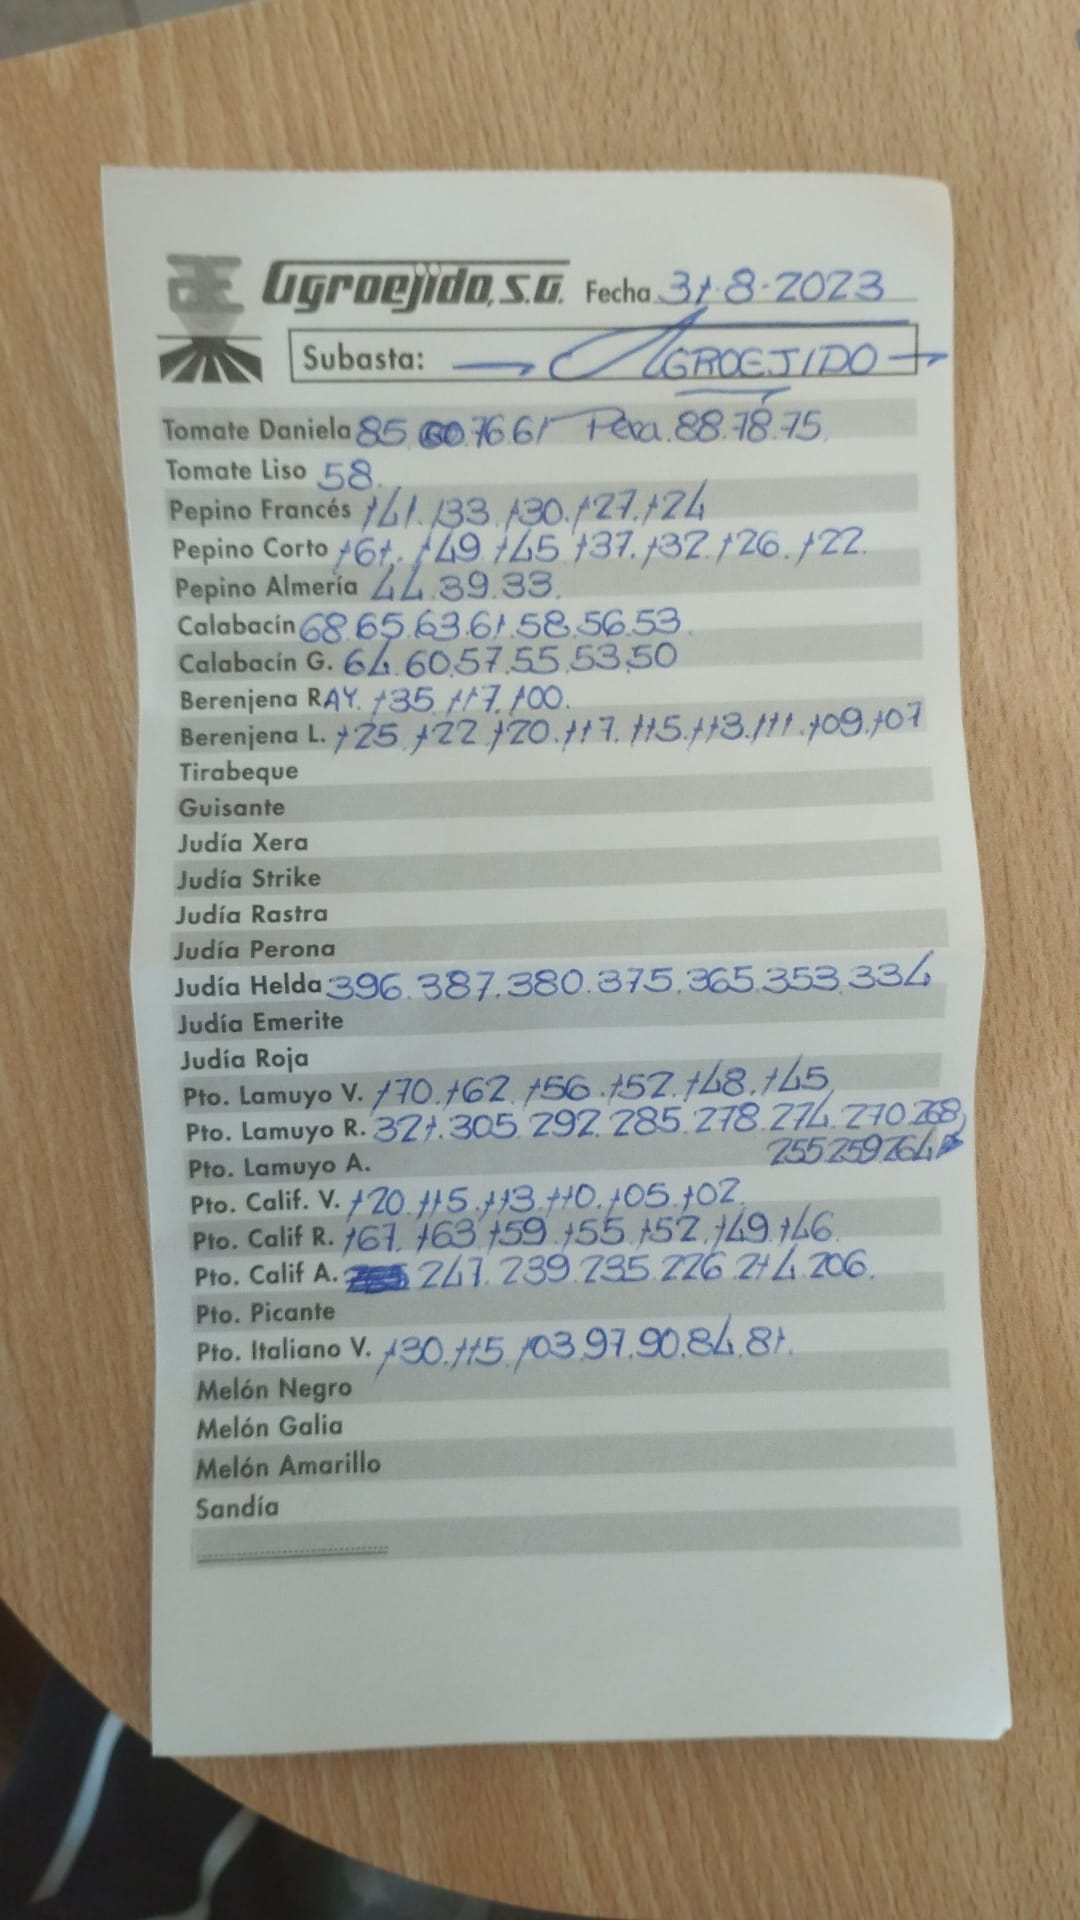 Agroejido, S.A. Fecha 31-8-2023
Subasta: AGROEJIDO
Tomate Daniela 85.80.76.61 Pera.88.78.75.
Tomate Liso 58.
Pepino Francés 141.133.130.127.124
Pepino Corto 161.149.145.137.132.126.122.
Pepino Almería 44.39.33.
Calabacín 68.65.63.61.58.56.53.
Calabacín G. 64.60.57.55.53.50
Berenjena RAY. 135.117.100.
Berenjena L. 125.122.120.117.115.113.111.109.107
Tirabeque
Guisante
Judía Xera
Judía Strike
Judía Rastra
Judía Perona
Judía Helda 396.387.380.375.365.353.334
Judía Emerite
Judía Roja
Pto. Lamuyo V. 170.162.156.152.148.145
Pto. Lamuyo R. 321.305.292.285.278.274.270.268
255.259.264
Pto. Lamuyo A.
Pto. Calif. V. 120.115.113.110.105.102.
Pto. Calif R. 167.163.159.155.152.149.146.
Pto. Calif A. 247.239.235.226.214.206.
Pto. Picante
Pto. Italiano V. 130.115.103.97.90.84.81.
Melón Negro
Melón Galia
Melón Amarillo
Sandía